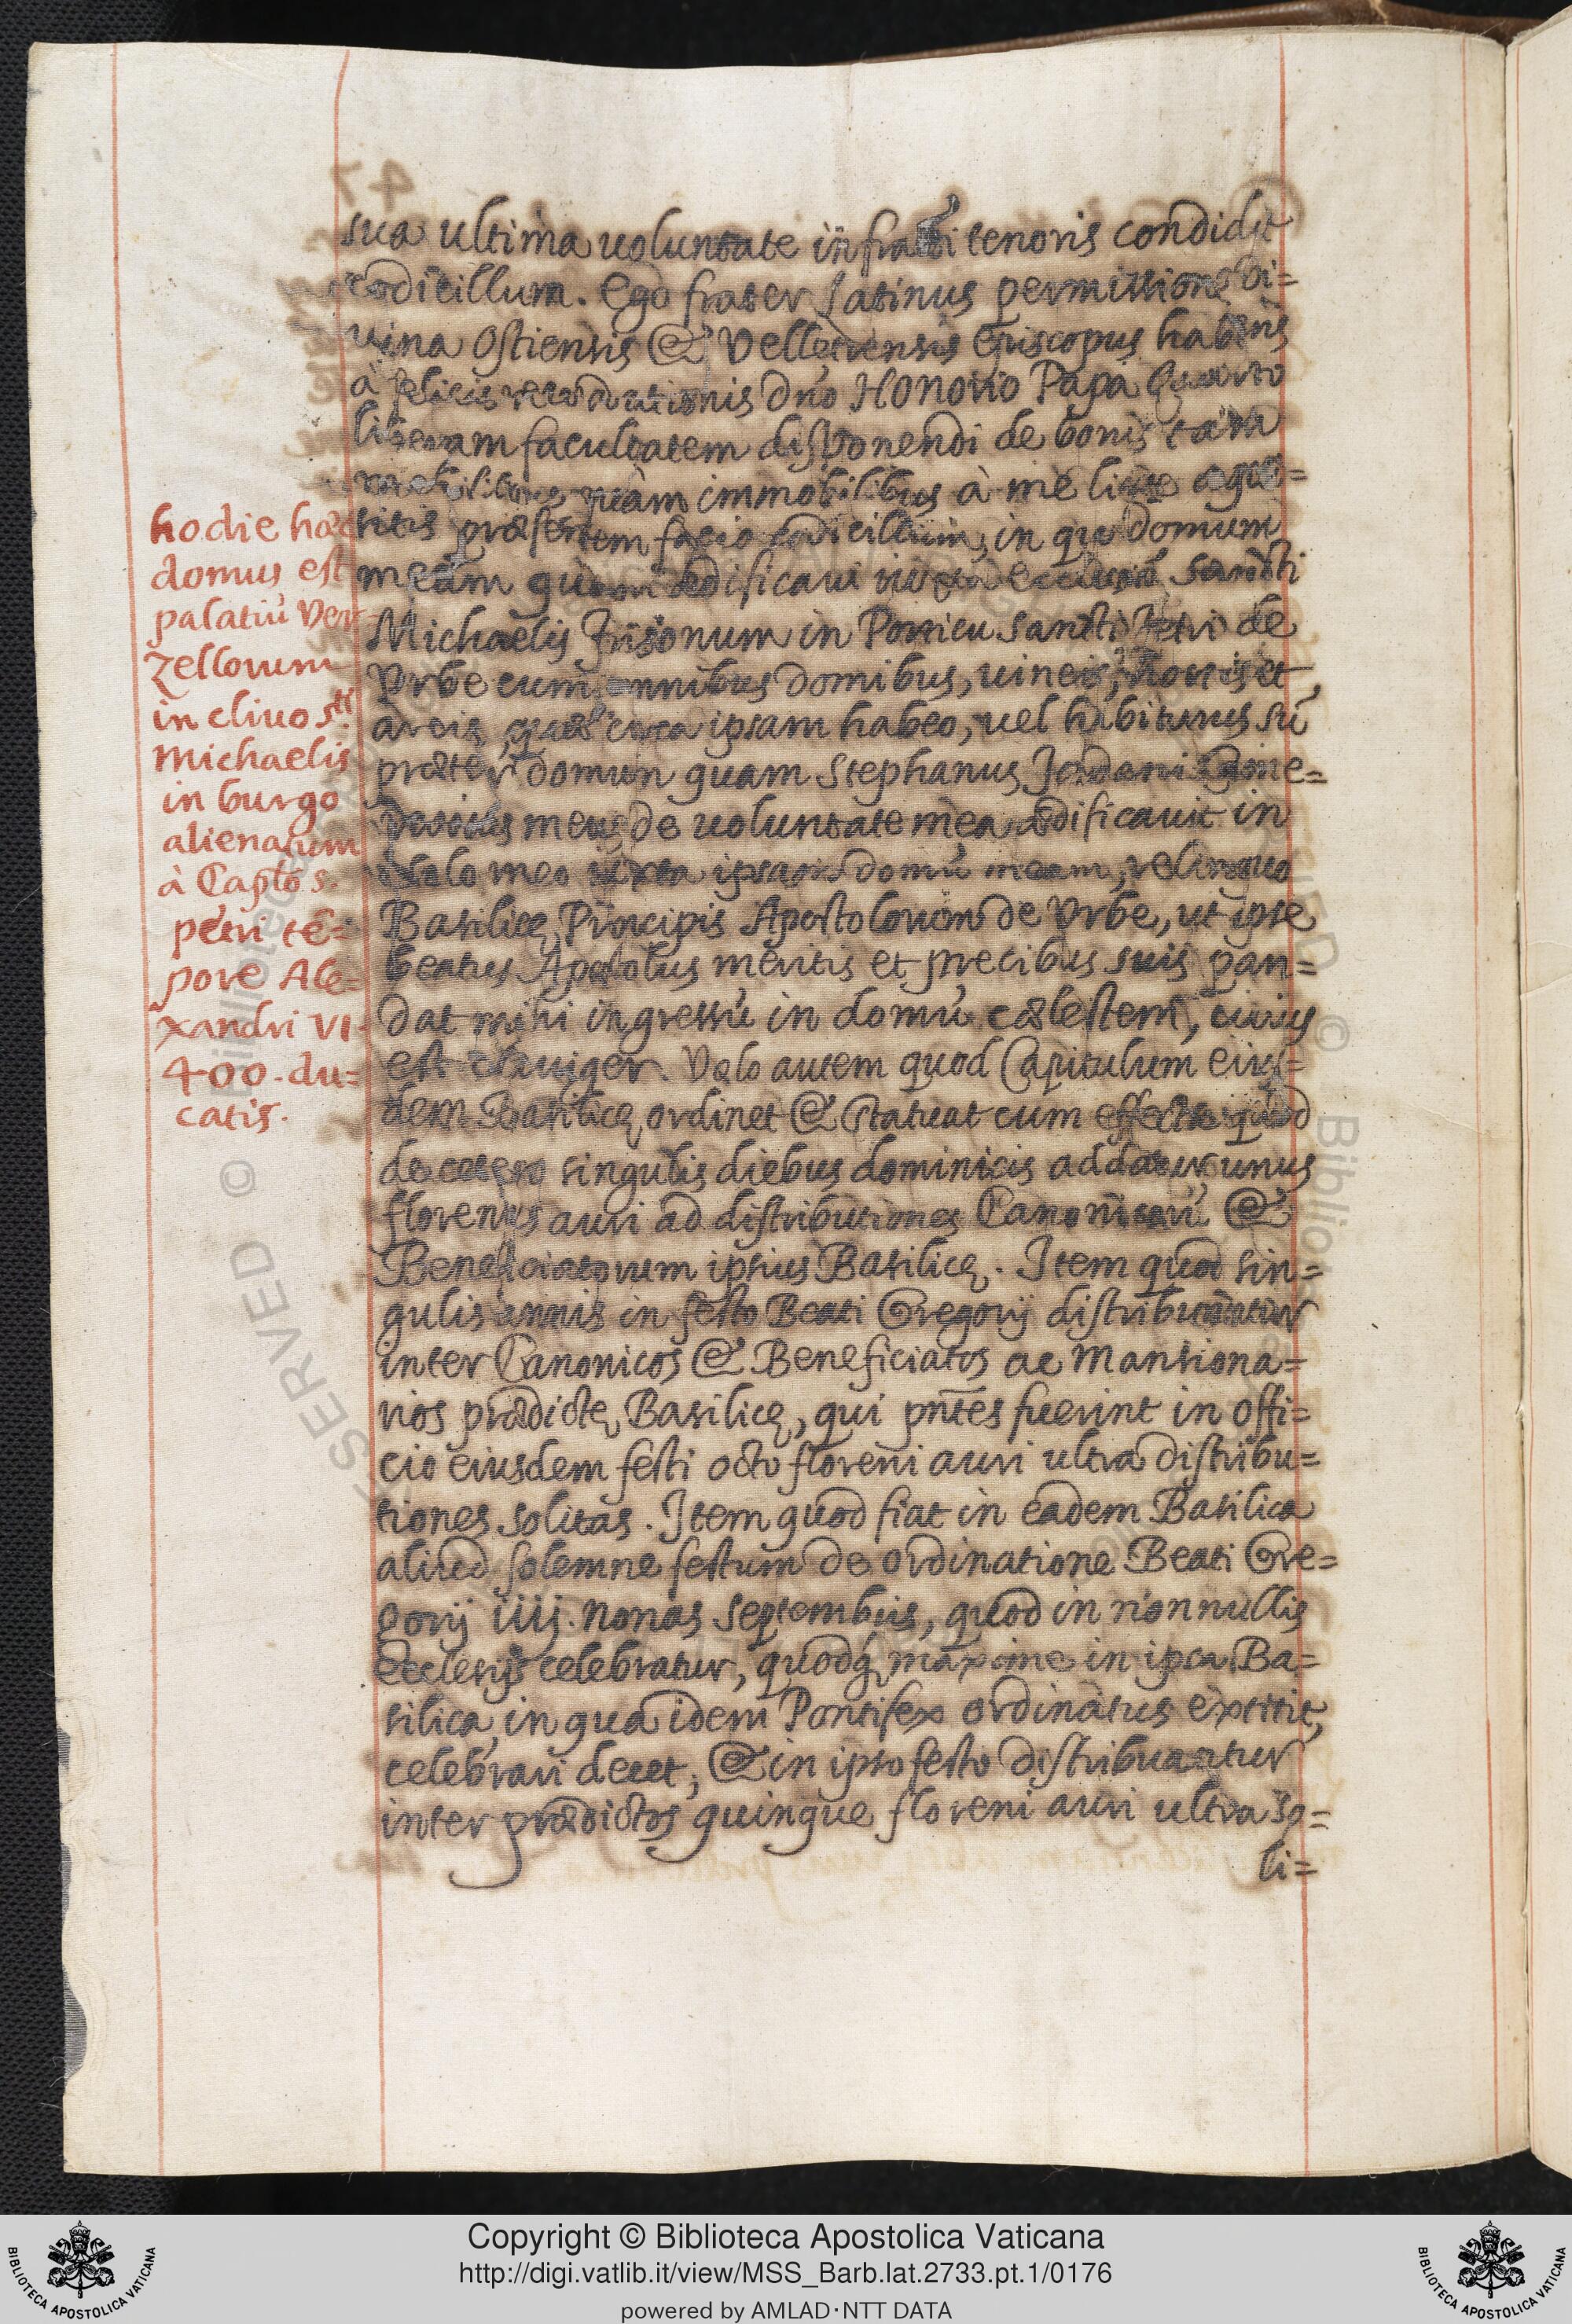 sua ultima uoluntate infrasti tenoris condidit
codicillum. Ego frater Latinus permissione di=
uina Ostiensis & Velletrensis Episcopus habens
à felicis recordationis dño Honorio Papa Quarto
liberam facultatem disponendi de bonis tam
mobilibus quàm immobilibus à me licite acqui=
sitis præsentem facio codicillum, in quo domum
meam quam ædificaui iuxta ecclesiã sancti
Michaelis Frisonum in Porticu sancti Petri de
Vrbe cum omnibus domibus, uineis, hortis et
areis, quas circa ipsam habeo, uel habiturus sũ
præter domum quam Stephanus Jordani
meus de uoluntate mea ædificauit in
solo meo iuxta ipsam domũ meam, relinquo
Basilicę Principis Apostolorum de Vrbe, ut ipse
beatus Apostolus meritis et precibus suis pan=
dat mihi ingressũ in domũ cælestem, cuius
est clauiger. Volo autem quod Capitulum eius=
dem Basilicę ordinet & statuat cum effectu quod
de cetero singulis diebus dominicis addatur unus
florenus auri ad distributiones Canonicorũ &
Beneficiatorum ipsius Basilicę. Item quod sin=
gulis annis in festo Beati Gregorij distribuantur
inter Canonicos & Beneficiatos ac Mansiona=
rios prædictę Basilicę, qui pñtes fuerint in offi=
cio eiusdem festi octo floreni auri ultra distribu=
tiones solitas. Item quod fiat in eadem Basilica
aliud solemne festum de ordinatione Beati Gre=
gorij iiij. nonas septembris, quod in nonnullis
Ecclesijs celebratur, quodq́ maxime in ipsa Ba=
silica, in qua idem Pontifex ordinatus extitit,
celebrari decet; & in ipso festo distribuantur
inter prædictos quinque floreni auri ultra so=
li=
hodie hæc
domus est
palatiũ Ver=
zellorum
in cliuo sti
Michaelis
in burgo
alienatum
à Capto s.
petri tẽ=
pore Ale=
xandri VI
400. du=
catis.
Copyright © Biblioteca Apostolica Vaticana
http://digi.vatlib.it/view/MSS_Barb.lat.2733.pt.1/0176
powered by AMLAD·NTT DATA
BIBLIOTECA APOSTOLICA VATICANA
BIBLIOTECA APOSTOLICA VATICANA